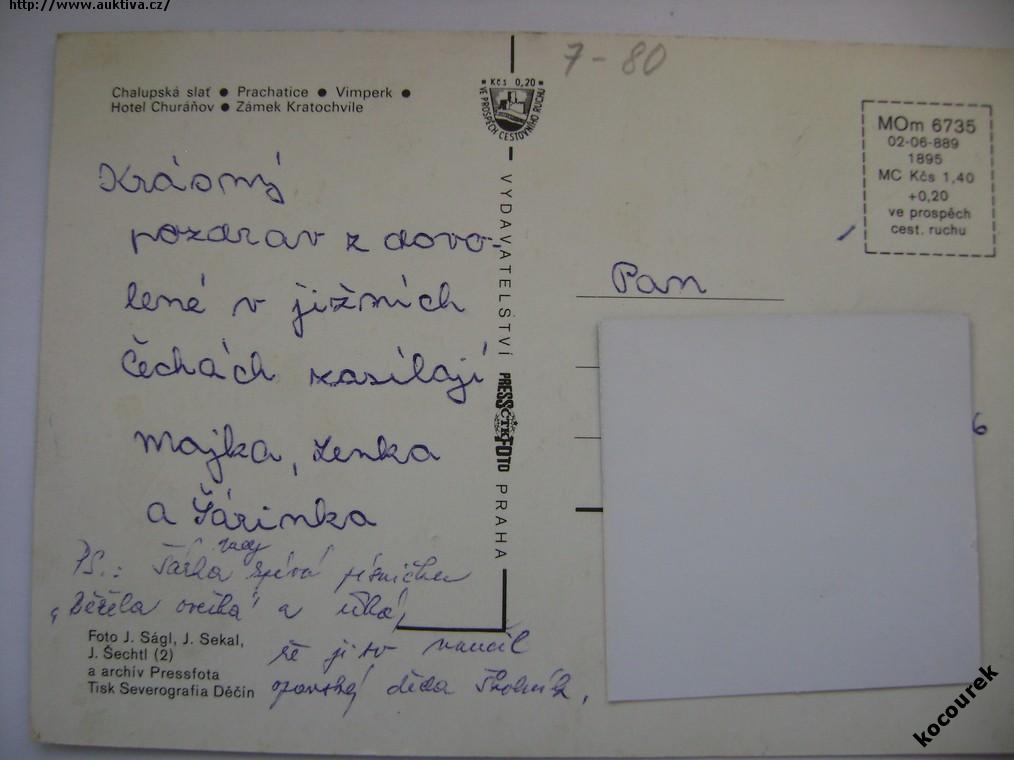 http://www.auktiva.cz/
7-80
Chalupská slať ● Prachatice ● Vimperk ●
Hotel Churáňov ● Zámek Kratochvíle
Kčs 0,20
VE PROSPĚCH CESTOVNÍHO RUCHU
MOm 6735
02-06-889
1895
MC Kčs 1,40
+0,20
ve prospěch
cest. ruchu
Krásný
pozdrav z dovo-
lené v jižních
Čechách zasílají
Majka, Lenka
a Šárinka
VYDAVATELSTVÍ PRESSFOTO PRAHA
ČTK
Pan
6
PS.: Šárka tady zpívá písničku
„Běžela ovečka" a říká,
že ji to naučil
opavský děda Školník.
Foto J. Ságl, J. Sekal,
J. Šechtl (2)
a archív Pressfota
Tisk Severografia Děčín
kocourek